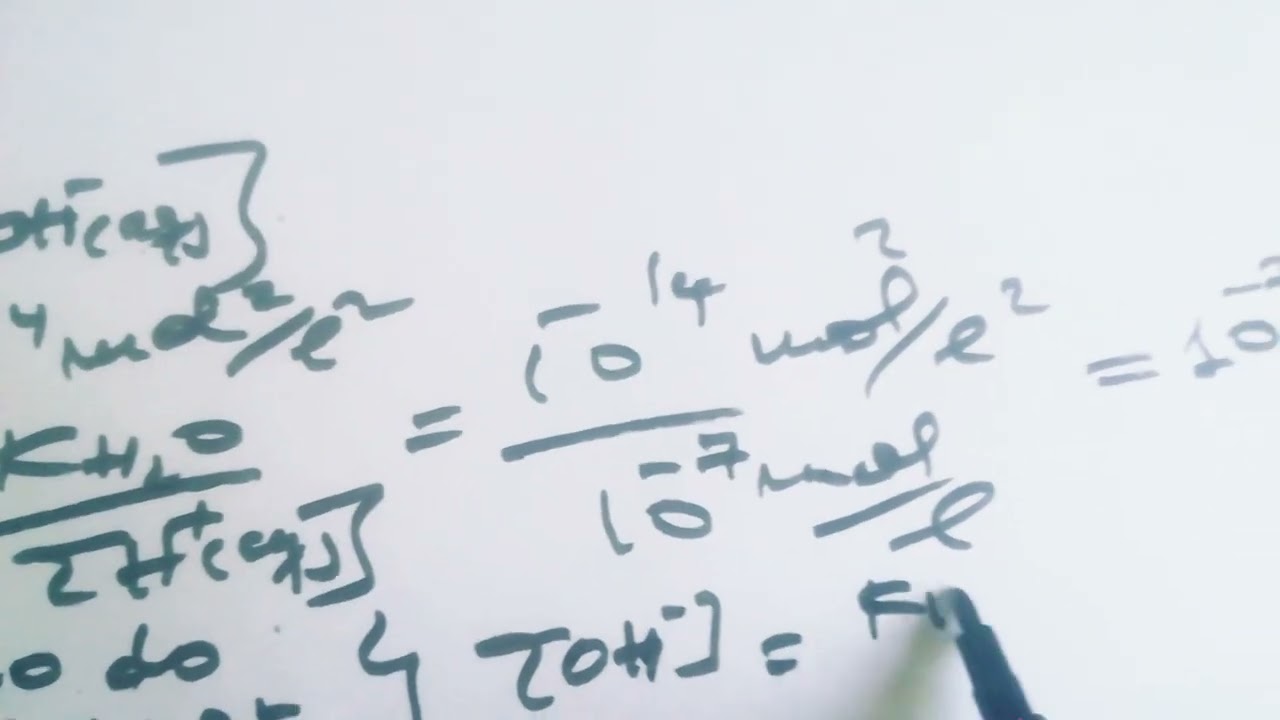 OH⁻(aq)]
⁴ mol²/l²
KH₂O / [H⁺(aq)] = 10⁻¹⁴ mol²/l² / 10⁻⁷ mol/l = 10⁻⁷
[OH⁻] = K